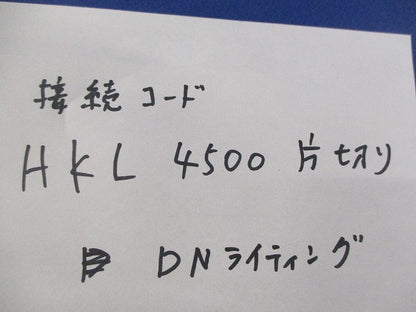 接続コード
HKL 4500 片切り
DNライティング